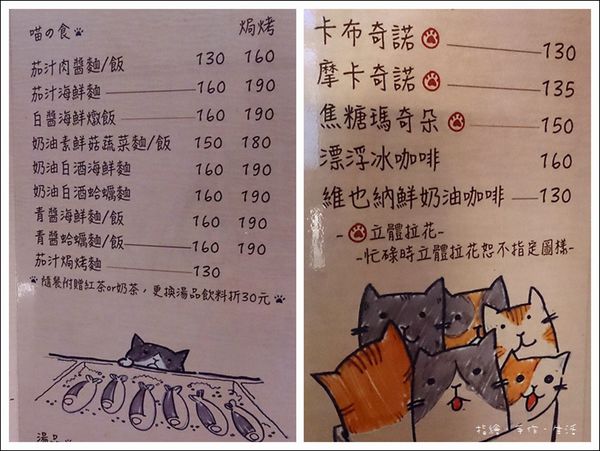 喵の食 焗烤
茄汁肉醬麵/飯 130 160
茄汁海鮮麵 160 190
白醬海鮮燉飯 160 190
奶油素鮮菇蔬菜麵/飯 150 180
奶油白酒海鮮麵 160 190
奶油白酒蛤蠣麵 160 190
青醬海鮮麵/飯 160 190
青醬蛤蠣麵/飯 160 190
茄汁焗烤麵 130
隨裝附贈紅茶or奶茶，更換湯品飲料折30元
湯品
卡布奇諾 130
摩卡奇諾 135
焦糖瑪奇朵 150
漂浮冰咖啡 160
維也納鮮奶油咖啡 130
-立體拉花-
-忙碌時立體拉花恕不指定圖樣-
指繪‧手作‧生活